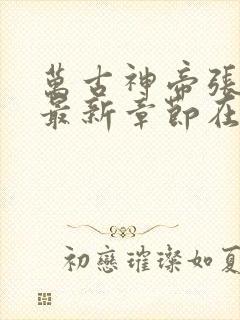 萬古神帝張
最新章節在
初戀璀璨如夏